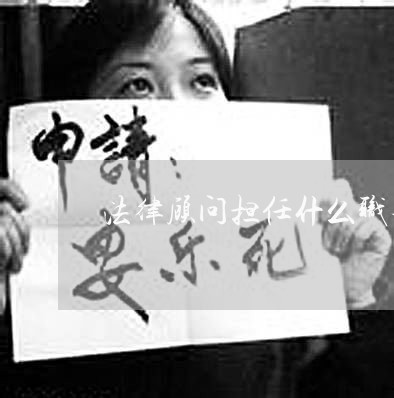 申請：
法律顾问担任什么職
安乐死